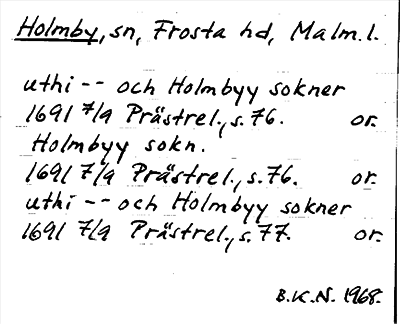 Holmby, sn, Frosta hd, Malm. l.
uthi -- och Holmbyy sokner
1691 7/9 Prästrel., s. 76. or.
Holmbyy sokn.
1691 7/9 Prästrel., s. 76. or.
uthi -- och Holmbyy sokner
1691 7/9 Prästrel., s. 77. or.
B.K.N. 1968.